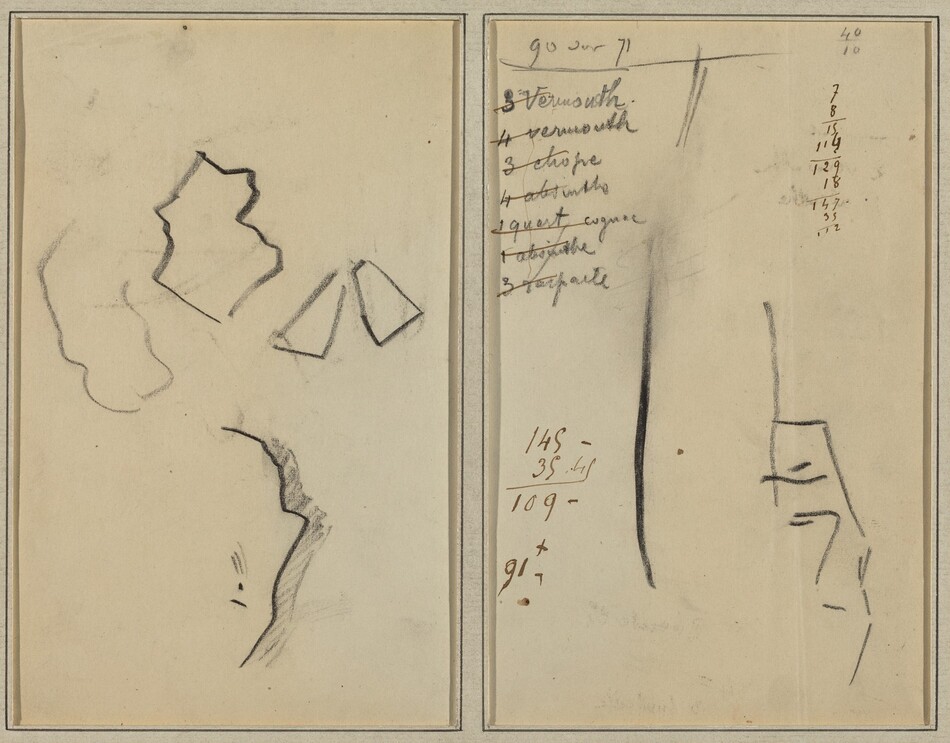 90 sur 71
40
10
3 Vermouth.
4 vermouth
3 chope
4 absinthe
1 quart cognac
1 absinthe
3
7
8
15
114
129
18
147
35
112
145 -
35.45
109 -
91 +